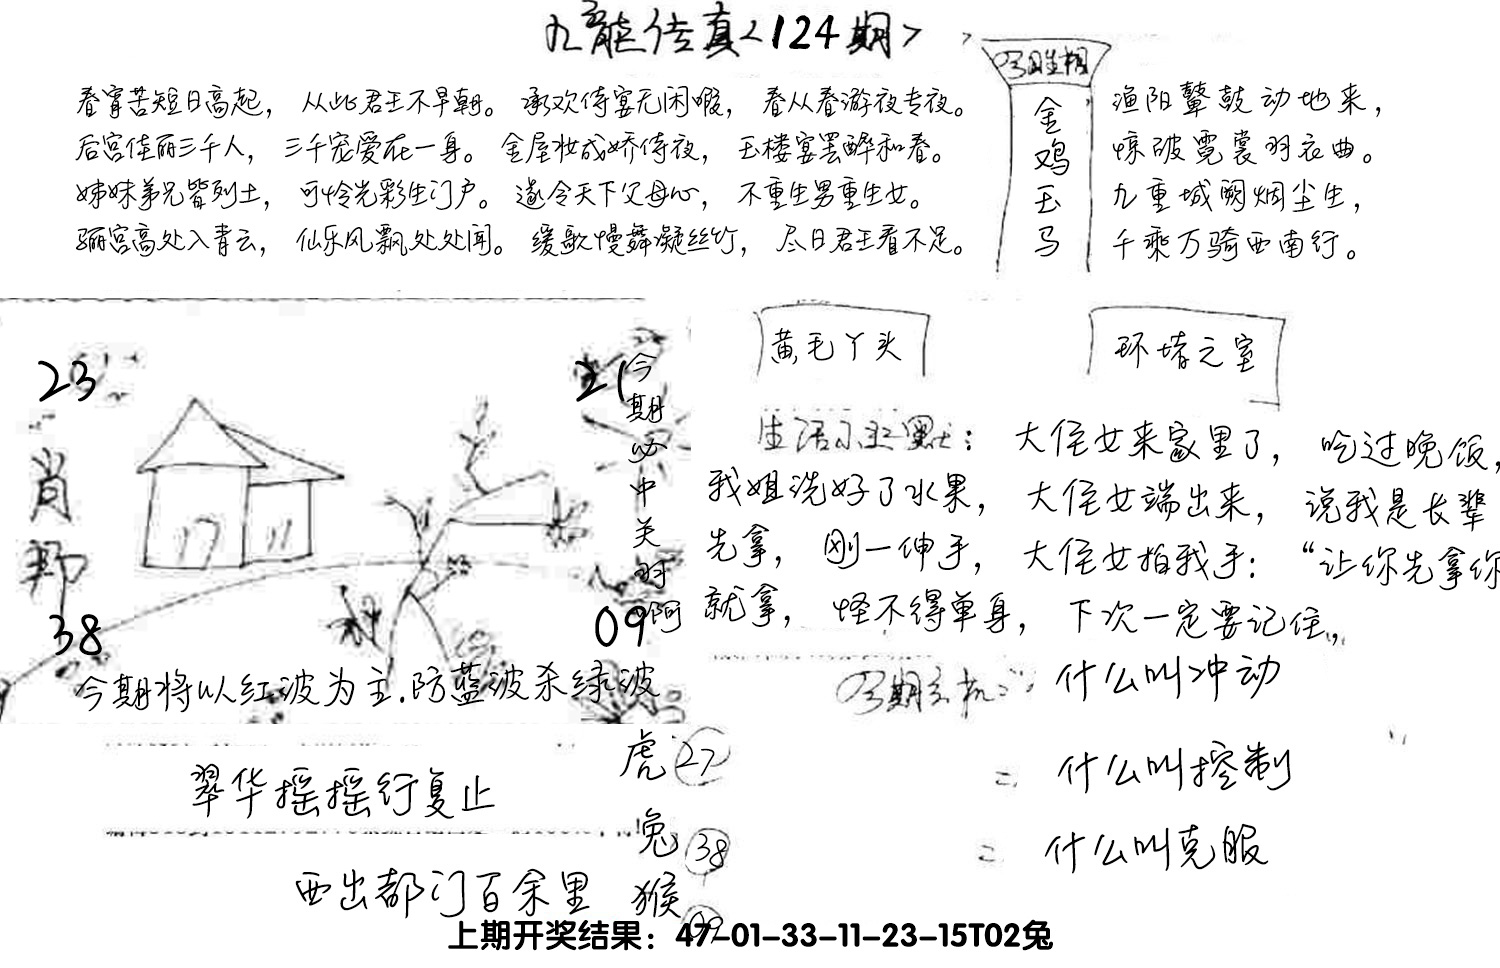 九龍传真<124期>
春宵苦短日高起，从此君王不早朝。承欢侍宴无闲暇，春从春游夜专夜。
后宫佳丽三千人，三千宠爱在一身。金屋妆成娇侍夜，玉楼宴罢醉和春。
姊妹弟兄皆列土，可怜光彩生门户。遂令天下父母心，不重生男重生女。
骊宫高处入青云，仙乐风飘处处闻。缓歌慢舞凝丝竹，尽日君王看不足。
金鸡玉马
渔阳鼙鼓动地来，
惊破霓裳羽衣曲。
九重城阙烟尘生，
千乘万骑西南行。
23
21
肖邦
38
09
今期必中关羽阿
今期将以红波为主.防蓝波杀绿波
黄毛丫头
环堵之室
生活小幽默：大侄女来家里了，吃过晚饭，
我姐洗好了水果，大侄女端出来，说我是长辈
先拿，刚一伸手，大侄女拍我手：“让你先拿你
就拿，怪不得单身，下次一定要记住，
今期玄机：什么叫冲动
= 什么叫控制
= 什么叫克服
翠华摇摇行复止
西出都门百余里
虎 27
兔 38
猴 09
上期开奖结果：47-01-33-11-23-15T02兔